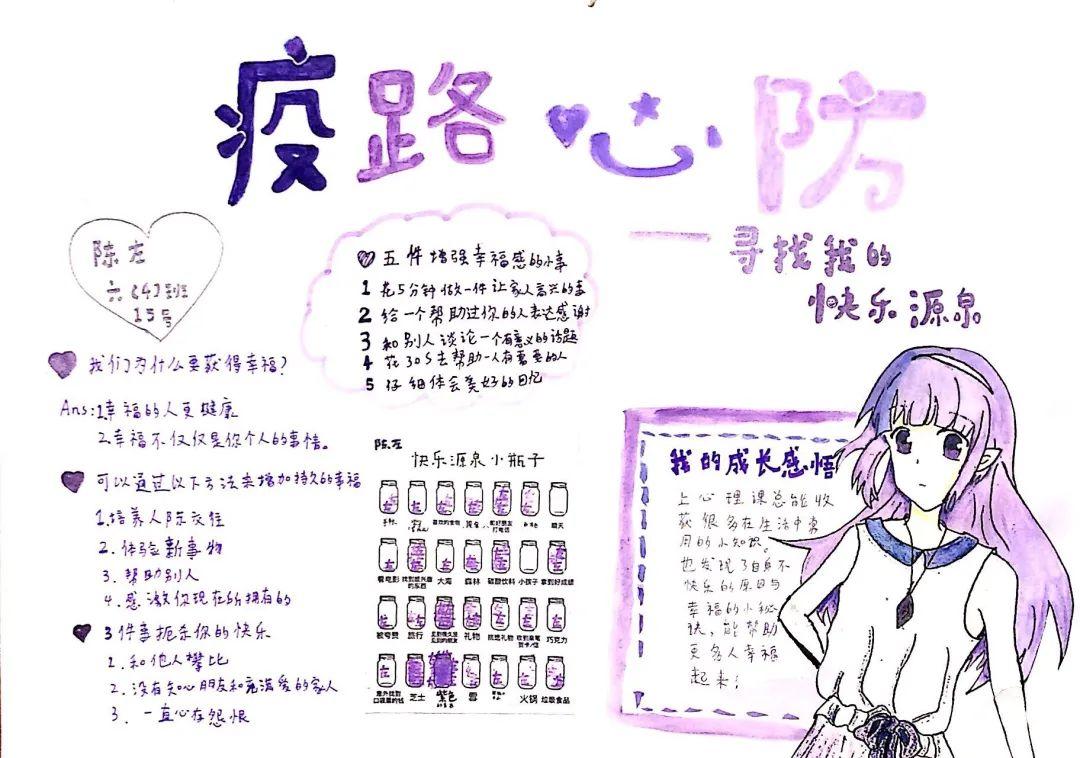 疫路心防
——寻找我的
快乐源泉
陈左
六(4)班
15号
五件增强幸福感的小事
1 花5分钟做一件让家人高兴的事
2 给一个帮助过你的人表达感谢
3 和别人谈论一个有意义的话题
4 花30S去帮助一人有需要的人
5 仔细体会美好的回忆
我们为什么要获得幸福?
Ans:1.幸福的人更健康
2.幸福不仅仅是你个人的事情。
可以通过以下方法来增加持久的幸福
1.培养人际交往
2.体验新事物
3.帮助别人
4.感激你现在所拥有的
3件事扼杀你的快乐
1.和他人攀比
2.没有知心朋友和充满爱的家人
3.一直心存怨恨
陈左
快乐源泉小瓶子
喜欢的食物
和好朋友
打电话
晴天
看电影
找到感兴趣
的东西
大海
森林
碳酸饮料
小孩子
拿到好成绩
被夸赞
旅行
见到很久没
见到的朋友
礼物
挑选礼物
收到亲笔
贺卡/信
巧克力
意外找到
口袋里的钱
芝士
紫色
雪
火锅
垃圾食品
我的成长感悟
上心理课总能收
获很多在生活中常
用的小知识。
也发现了自身不
快乐的原因与
幸福的小秘
诀,能帮助
更多人幸福
起来!